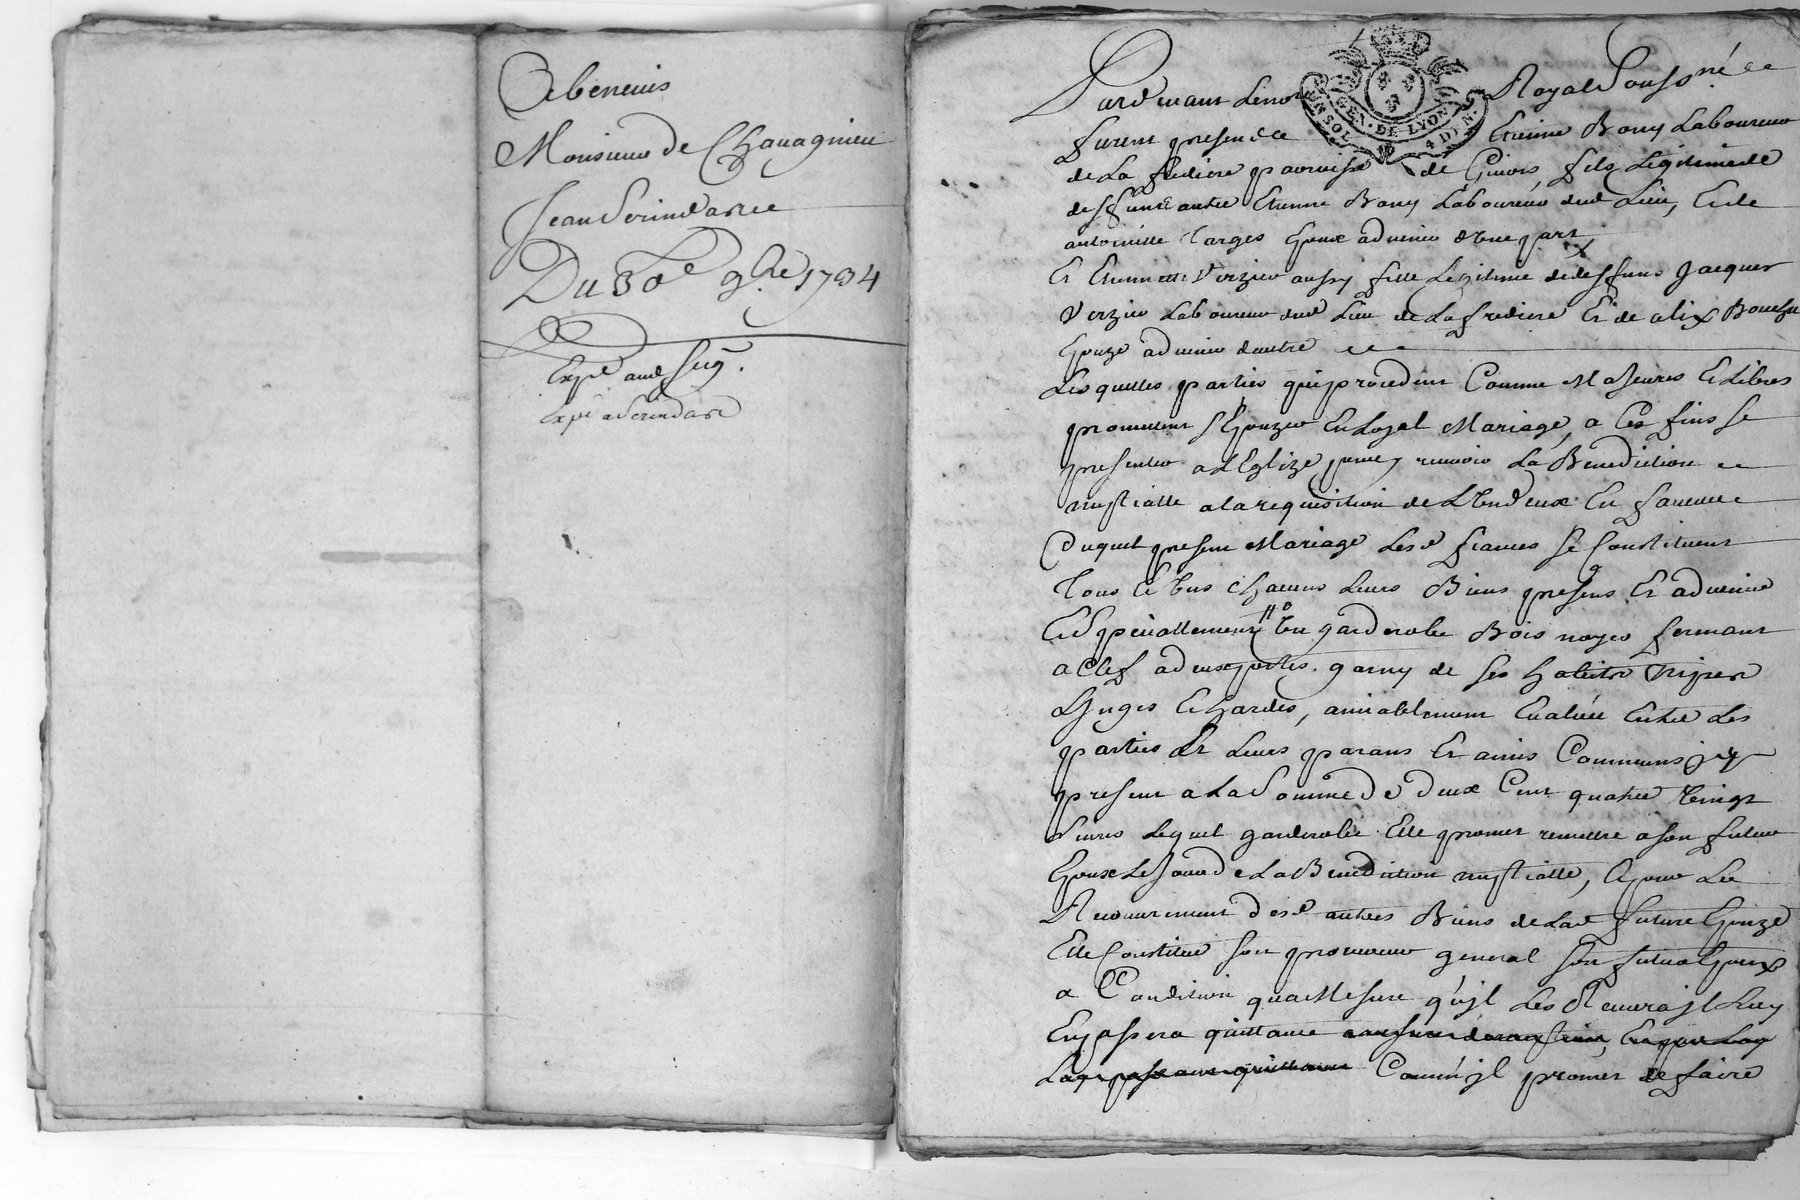 Abenevis
Monsieur de Chavagnieu
Jean Serindasre
Du 30e 9bre 1734
Expé aud Seig.
Expé a Serindasre
GEN. DE LYON
UN SOL 4 DEN.
Pardevant Le no Royal Sousone ee
furent presens ee Etienne Bony Laboureur
de La fredière parroisse de Givors, fils Legitime de
deffunt autre Etienne Bony Laboureur dud Lieu, Et de
antoinette Targes Epoux advenir d'Une part
Et Etiennette Verzieu aussy fille Legitime de deffunt Jacques
Verzieu Laboureur dud Lieu de La fredière Et de alix
Epouze advenir d'autre ee
Lesquelles parties qui procedent Comme Majeures Et Libres
promettent s'Epouzer En Loyal Mariage, a Ces fins se
presenter a L'Eglize pour y recevoir La Benediction ee
nuptialle a la requisition de L'Un d'eux En faveur
Duquel present Mariage Lesd fiancés Se Constituent
Tous Et Uns Chacuns Leurs Biens presens Et advenir
Et Specialement Un garderobe Bois noyer fermant
a Clef a deux portes garny de ses habits Nipes
Linges Et hardes, amiablement Evalué Entre Les
parties Et Leurs parans Et amis Communs jcy
present a La Somme De deux Cent quatre Vingt
Livres Lequel garderobe Elle promet remettre a son futur
Epoux Le Jour de La Benediction nuptialle, Et pour Le
Recouvrement desd autres Biens de Lad future Epouze
Elle Constitue son procureur general son futur Epoux
a Condition qu'a Mesure qu'jl Les Recevra jl Luy
En passera quittance Comm'jl promet de faire